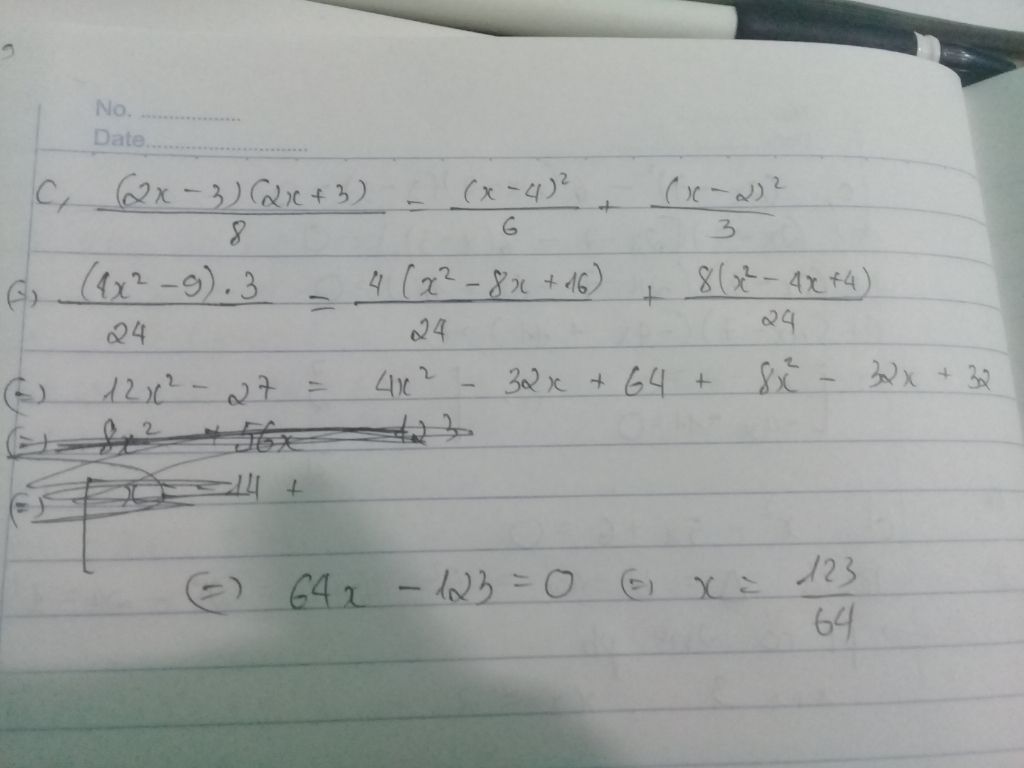 No. ....................
Date...................................
C, (2x - 3)(2x + 3) / 8 = (x - 4)² / 6 + (x - 2)² / 3
(=) (4x² - 9) . 3 / 24 = 4 (x² - 8x + 16) / 24 + 8(x² - 4x + 4) / 24
(=) 12x² - 27 = 4x² - 32x + 64 + 8x² - 32x + 32
(=) 8x² + 56x 123
(=) x - 14 +
(=) 64x - 123 = 0 (=) x = 123 / 64